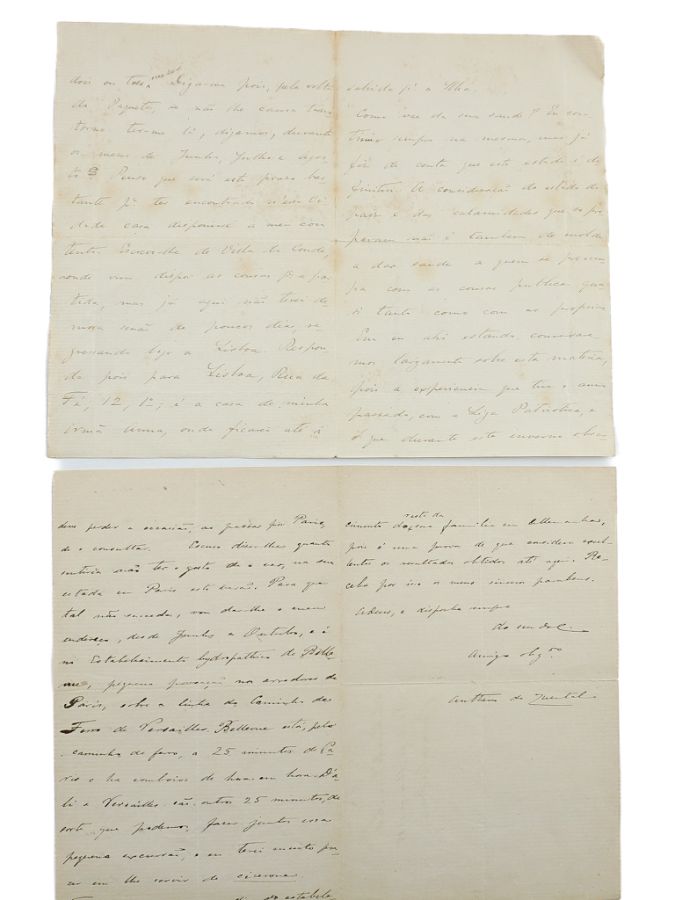 dois ou tres mezes. Diga-me pois, pela volta
do Paquete, se não lhe causa trans
torno ter-me lá, digamos, durante
os mezes de Junho, Julho e Agos
to? Penso que será este prazo bas
tante p.ª ter encontrado n'essa ci
dade casa disponivel a meu con
tento. Escrevo-lhe de Villa do Conde,
onde vim dispor as cousas p.ª a par
tida, mas já aqui não terei de
mora senão de poucos dias, re
gressando logo a Lisboa. Respon
da pois para Lisboa, Rua da
Fé, 12, 1º; é a casa de minha
irmã Anna, onde ficarei até á
sahida p.ª a Ilha.
Como vae da sua saude? Eu con
tinuo sempre na mesma, mas já
fiz de conta que este estado é de
finitivo. A consideração do estado do
paiz e das calamidades que se pre
param não é tambem de molde
a dar saude a quem se preoccu
pa com as cousas publicas quasi
tanto como com as proprias
Em eu ahi estando conversare
mos largamente sobre esta materia,
pois a experiencia que tive o anno
passado, com a Liga Patriotica, e
o que durante este inverno obser
dem perder a occasião, ao passar por Paris,
de o consultar. Escuso dizer-lhe quanto
sentiria não ter o gosto de o ver, na sua
estada em Paris este verão. Para que
tal não succeda, vou dar-lhe o meu
endereço, desde Junho a Outubro, e é
no Estabelecimento hydropathico de Belle
vue, pequena povoação nos arredores de
Paris, sobre a linha do Caminho de
Ferro de Versailles. Bellevue está, pelo
caminho de ferro, a 25 minutos de Pa
ris e ha comboios de hora em hora. D'a
li a Versailles são outros 25 minutos, de
sorte que podemos fazer juntos essa
pequena excursão, e eu terei muito pra
zer em lhe servir de cicerone.
estabele
cimento do resto da sua familia em Allemanha,
pois é uma prova de que considera excel
lentes os resultados obtidos até aqui. Re
ceba por isso os meus sinceros parabens.
Adeus, e disponha sempre
do seu do C.
Amigo obg.do
Anthero de Quental